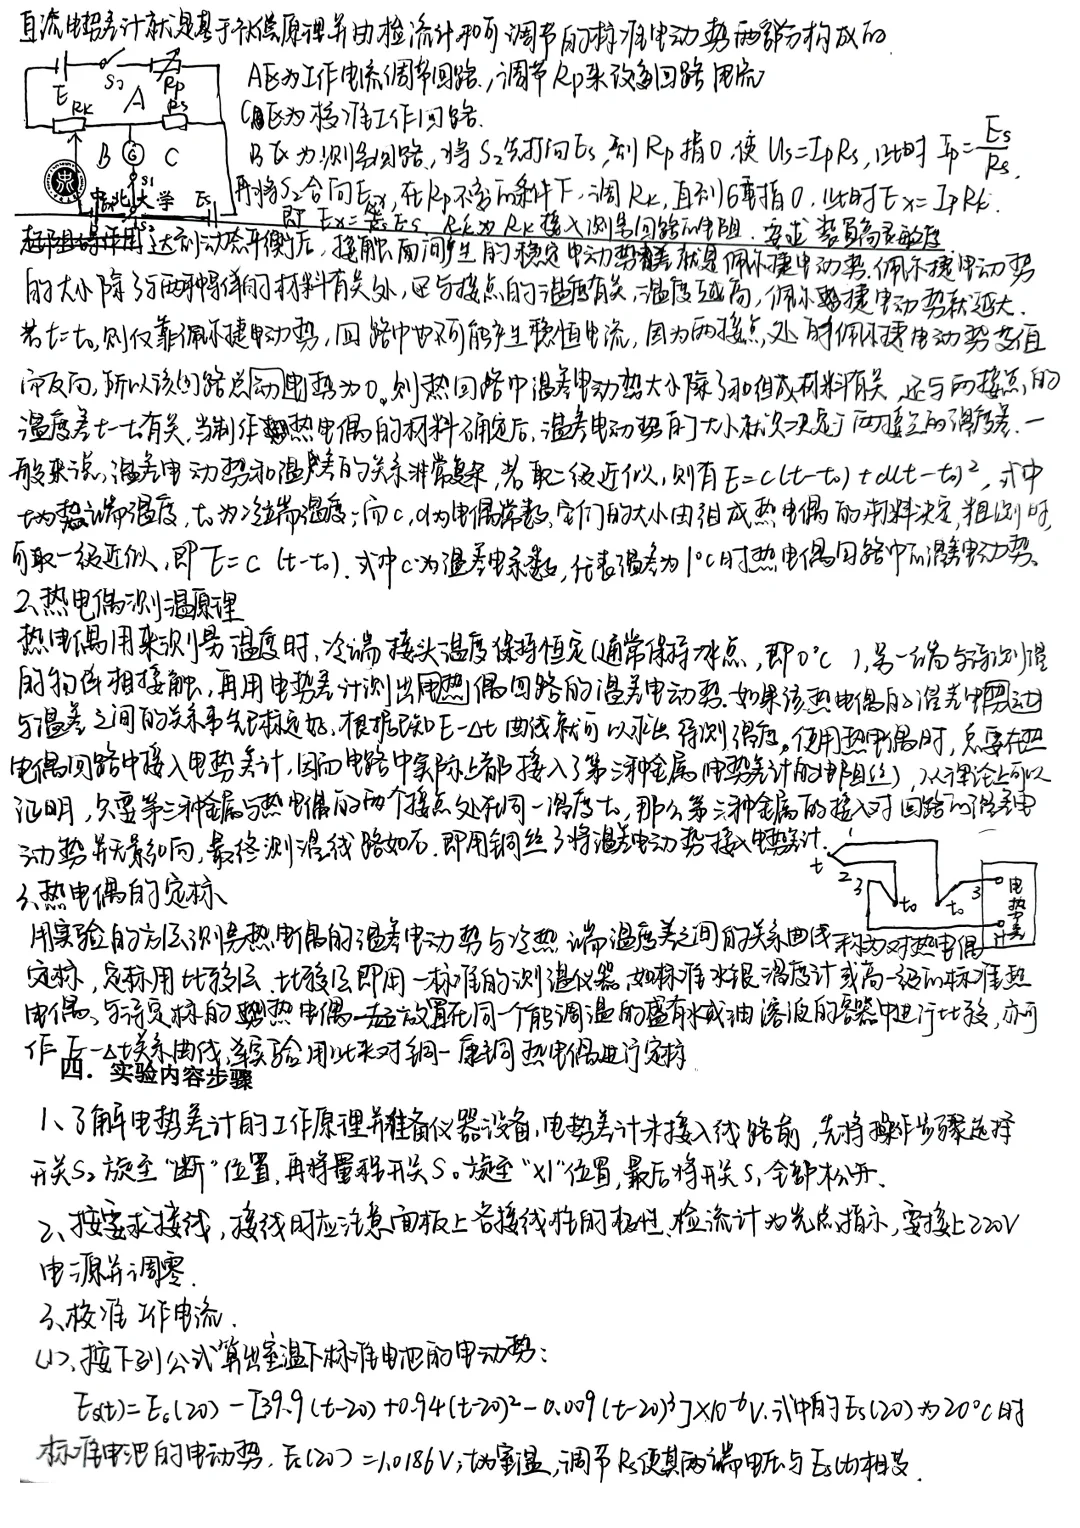 直流电势差计就是基于补偿原理并由检流计和可调节的标准电动势两部分构成的.
A区为工作电流调节回路,调节Rp来改变回路电流
C区为校准工作回路.
B区为测量回路,将S2先打向Es,到Rp指0,使Us=IpRs,此时Ip=Es/Rs.
再将S2合向Ex,在Rp不变的条件下,调Rk,直到G再指0,此时Ex=IpRk.
即Ex= Es,Rk为Rk接入测量回路的电阻.要求装置高灵敏度
E S2 Rp
Rk A Rs
B G C
S1
中北大学 Es
S2
达到动态平衡后,接触面间产生的稳定电动势就是佩尔捷电动势.佩尔捷电动势
的大小除了与两种导体的材料有关外,还与接点的温度有关,温度越高,佩尔捷电动势就越大.
若t=t0,则仅靠佩尔捷电动势,回路中也不可能产生稳恒电流,因为两接点处的佩尔捷电动势等值
而反向,所以该回路总动电势为0。则热回路中温差电动势大小除了和组成材料有关,还与两接点的
温度差t-t0有关,当制作热电偶的材料确定后,温差电动势的大小就只决定于两接点的温度差.一
般来说,温差电动势和温差的关系非常复杂,若取二级近似,则有E=c(t-t0)+d(t-t0)²,式中
t为热端温度,t0为冷端温度;而c,d为电偶常数,它们的大小由组成热电偶的材料决定,粗测时,
可取一级近似,即E=c(t-t0).式中c为温差电系数,代表温差为1℃时热电偶回路中的温差电动势.
2、热电偶测温原理
热电偶用来测量温度时,冷端接头温度保持恒定(通常保持冰点,即0℃),另一端与待测温
的物体相接触,再用电势差计测出热偶回路的温差电动势.如果该热电偶的温差电势动
与温差之间的关系事先已标定好,根据已知E-Δt曲线就可以求出待测温度。使用热电偶时,总要在热
电偶回路中接入电势差计,因而电路中实际上都接入了第三种金属(电势差计的电阻丝),从理论上可以
证明,只要第三种金属与热电偶的两个接点处在同一温度t0,那么第三种金属的接入对回路的温差电
动势并无影响,最终测温线路如右.即用铜丝3将温差电动势接入电势差计.
t 1 2 3 t0 t0 3 电势差计
3、热电偶的定标
用实验的方法测量热电偶的温差电动势与冷热端温度差之间的关系曲线称为对热电偶
定标,定标用比较法.比较法即用一标准的测温仪器,如标准水银温度计或高一级的标准热
电偶、与待定标的热电偶一去放置在同一个能调温的盛有水或油溶液的容器中进行比较,亦可
作E-Δt关系曲线,本实验用此来对铜-康铜热电偶进行定标
四．实验内容步骤
1、了解电势差计的工作原理并准备仪器设备,电势差计未接入线路前,先将操作步骤选择
开关S2旋至“断”位置,再将量程开关S0旋至“X1”位置,最后将开关S1全部松开.
2、按要求接线,接线时应注意面板上各接线柱的极性、检流计为光点指示,要接上220V
电源并调零.
3、校准工作电流.
(1)、按下列公式算出室温下标准电池的电动势:
Es(t)=Es(20)-[39.9(t-20)+0.94(t-20)²-0.009(t-20)³]×10⁻⁶V.式中的Es(20)为20℃时
标准电池的电动势.Es(20)=1.0186V;t为室温,调节Rs使其两端电压与Es(t)相等.